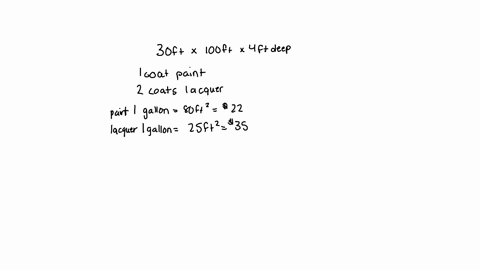 30ft x 100ft x 4ft deep
1 coat paint
2 coats lacquer
paint 1 gallon = 80ft² = $22
lacquer 1 gallon = 25ft² = $35